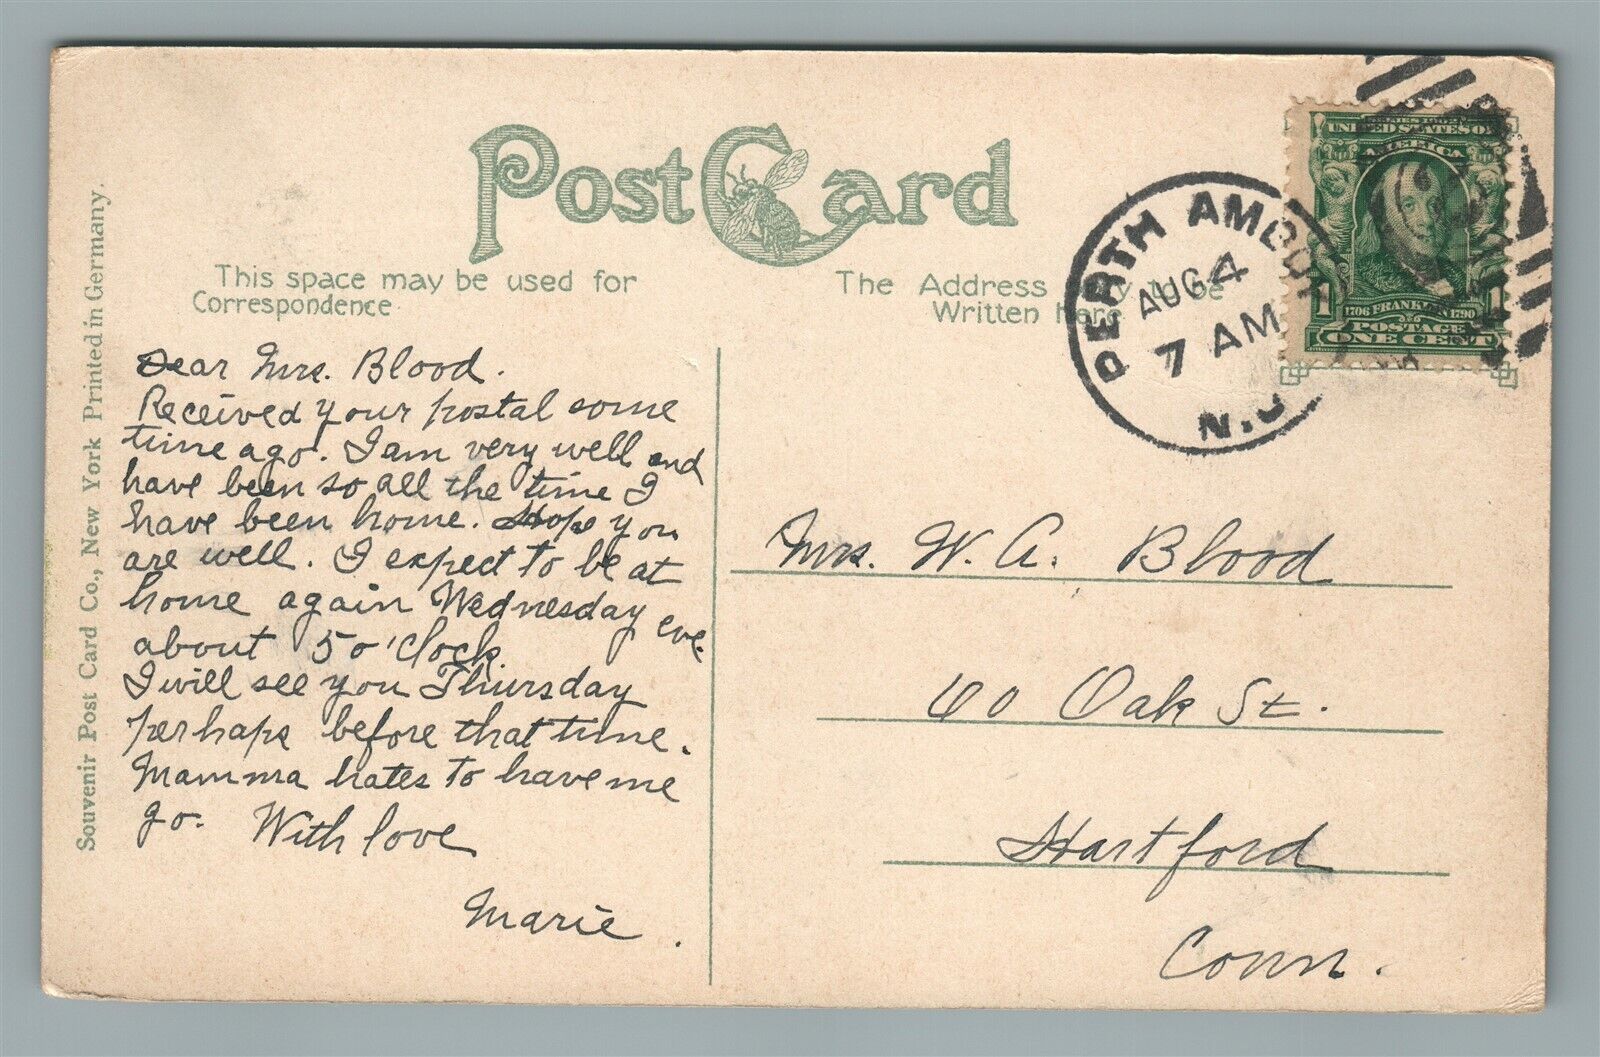 Post Card
This space may be used for
Correspondence
The Address be
Written here
Souvenir Post Card Co., New York Printed in Germany.
PERTH AMBOY
AUG 4
7 AM
N.J.
UNITED STATES OF
AMERICA
1706 FRANKLIN 1790
POSTAGE
1 ONE CENT 1
Dear Mrs. Blood.
Received your postal some
time ago. I am very well and
have been so all the time I
have been home. Hope you
are well. I expect to be at
home again Wednesday eve.
about 5 o'clock.
I will see you Thursday
perhaps before that time.
Mamma hates to have me
go. With love
Marie.
Mrs. W. A. Blood
60 Oak St.
Hartford
Conn.